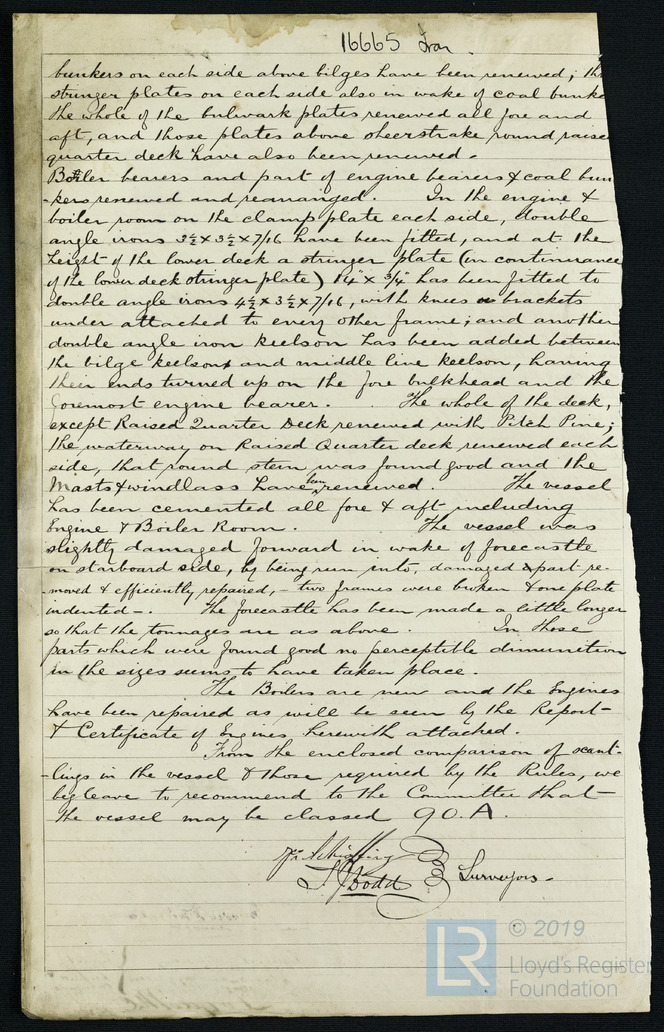 16665 Iron.
bunkers on each side above bilges have been renewed; the
stringer plates on each side also in wake of coal bunke
the whole of the bulwark plates renewed all fore and
aft, and those plates above sheerstrake round raise
quarter deck have also been renewed.
Boiler bearers and part of engine bearers & coal bun
-kers renewed and rearranged. In the engine &
boiler room on the clamp plate each side, double
angle irons 3½ x 3½ x 7/16 have been fitted, and at the
height of the lower deck a stringer plate (in continuance
of the lower deck stringer plate) 14" x ¾" has been fitted to
double angle irons 4½ x 3½ x 7/16, with knees brackets
under attached to every other frame; and another
double angle iron keelson has been added between
the bilge keelson and middle line keelson, having
their ends turned up on the fore bulkhead and the
foremost engine bearer. The whole of the deck,
except Raised Quarter Deck renewed with Pitch Pine;
the waterway on Raised Quarter deck renewed each
side, that round stern was found good and the
Masts & windlass have been renewed. The vessel
has been cemented all fore & aft including
Engine & Boiler Room. The vessel was
slightly damaged forward in wake of forecastle
on starboard side, by being run into, damaged part re-
-moved & efficiently repaired, - two frames were broken & one plate
indented -. The forecastle has been made a little longer
so that the tonnages are as above. In those
parts which were found good no perceptible dimunition
in the sizes seems to have taken place.
The Boilers are new and the Engines
have been repaired as will be seen by the Report -
& Certificate of Engines herewith attached.
From the enclosed comparison of scant-
-lings in the vessel & those required by the Rules, we
beg leave to recommend to the Committee that -
the vessel may be classed 90.A.
Dodd Surveyors -
© 2019
LR Lloyd's Register
Foundation